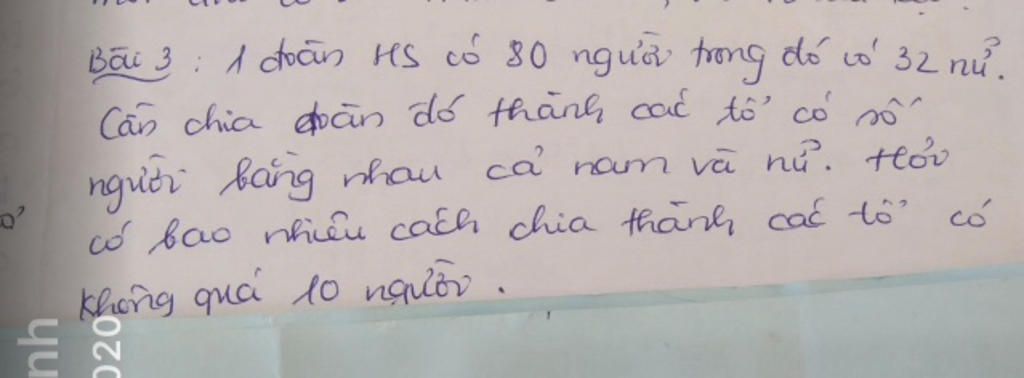 Bài 3 : 1 đoàn HS có 80 người trong đó có 32 nữ.
Cần chia đoàn đó thành các tổ có số
người bằng nhau cả nam và nữ. Hỏi
có bao nhiêu cách chia thành các tổ có
không quá 10 người.
nh
020